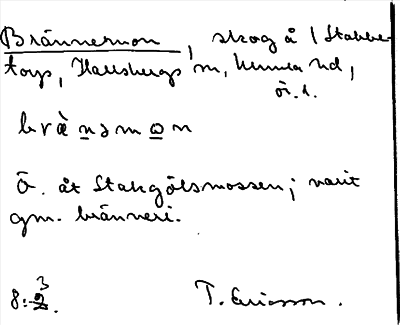 Brännermon, skog å 1 Stabbe-
torp, Hallsbergs sn, Kumla hd,
Ör. l.
bränəmon
Ö. åt Stakgölsmossen; varit
gm. bränneri.
3
8:2.
T. Ericsson.